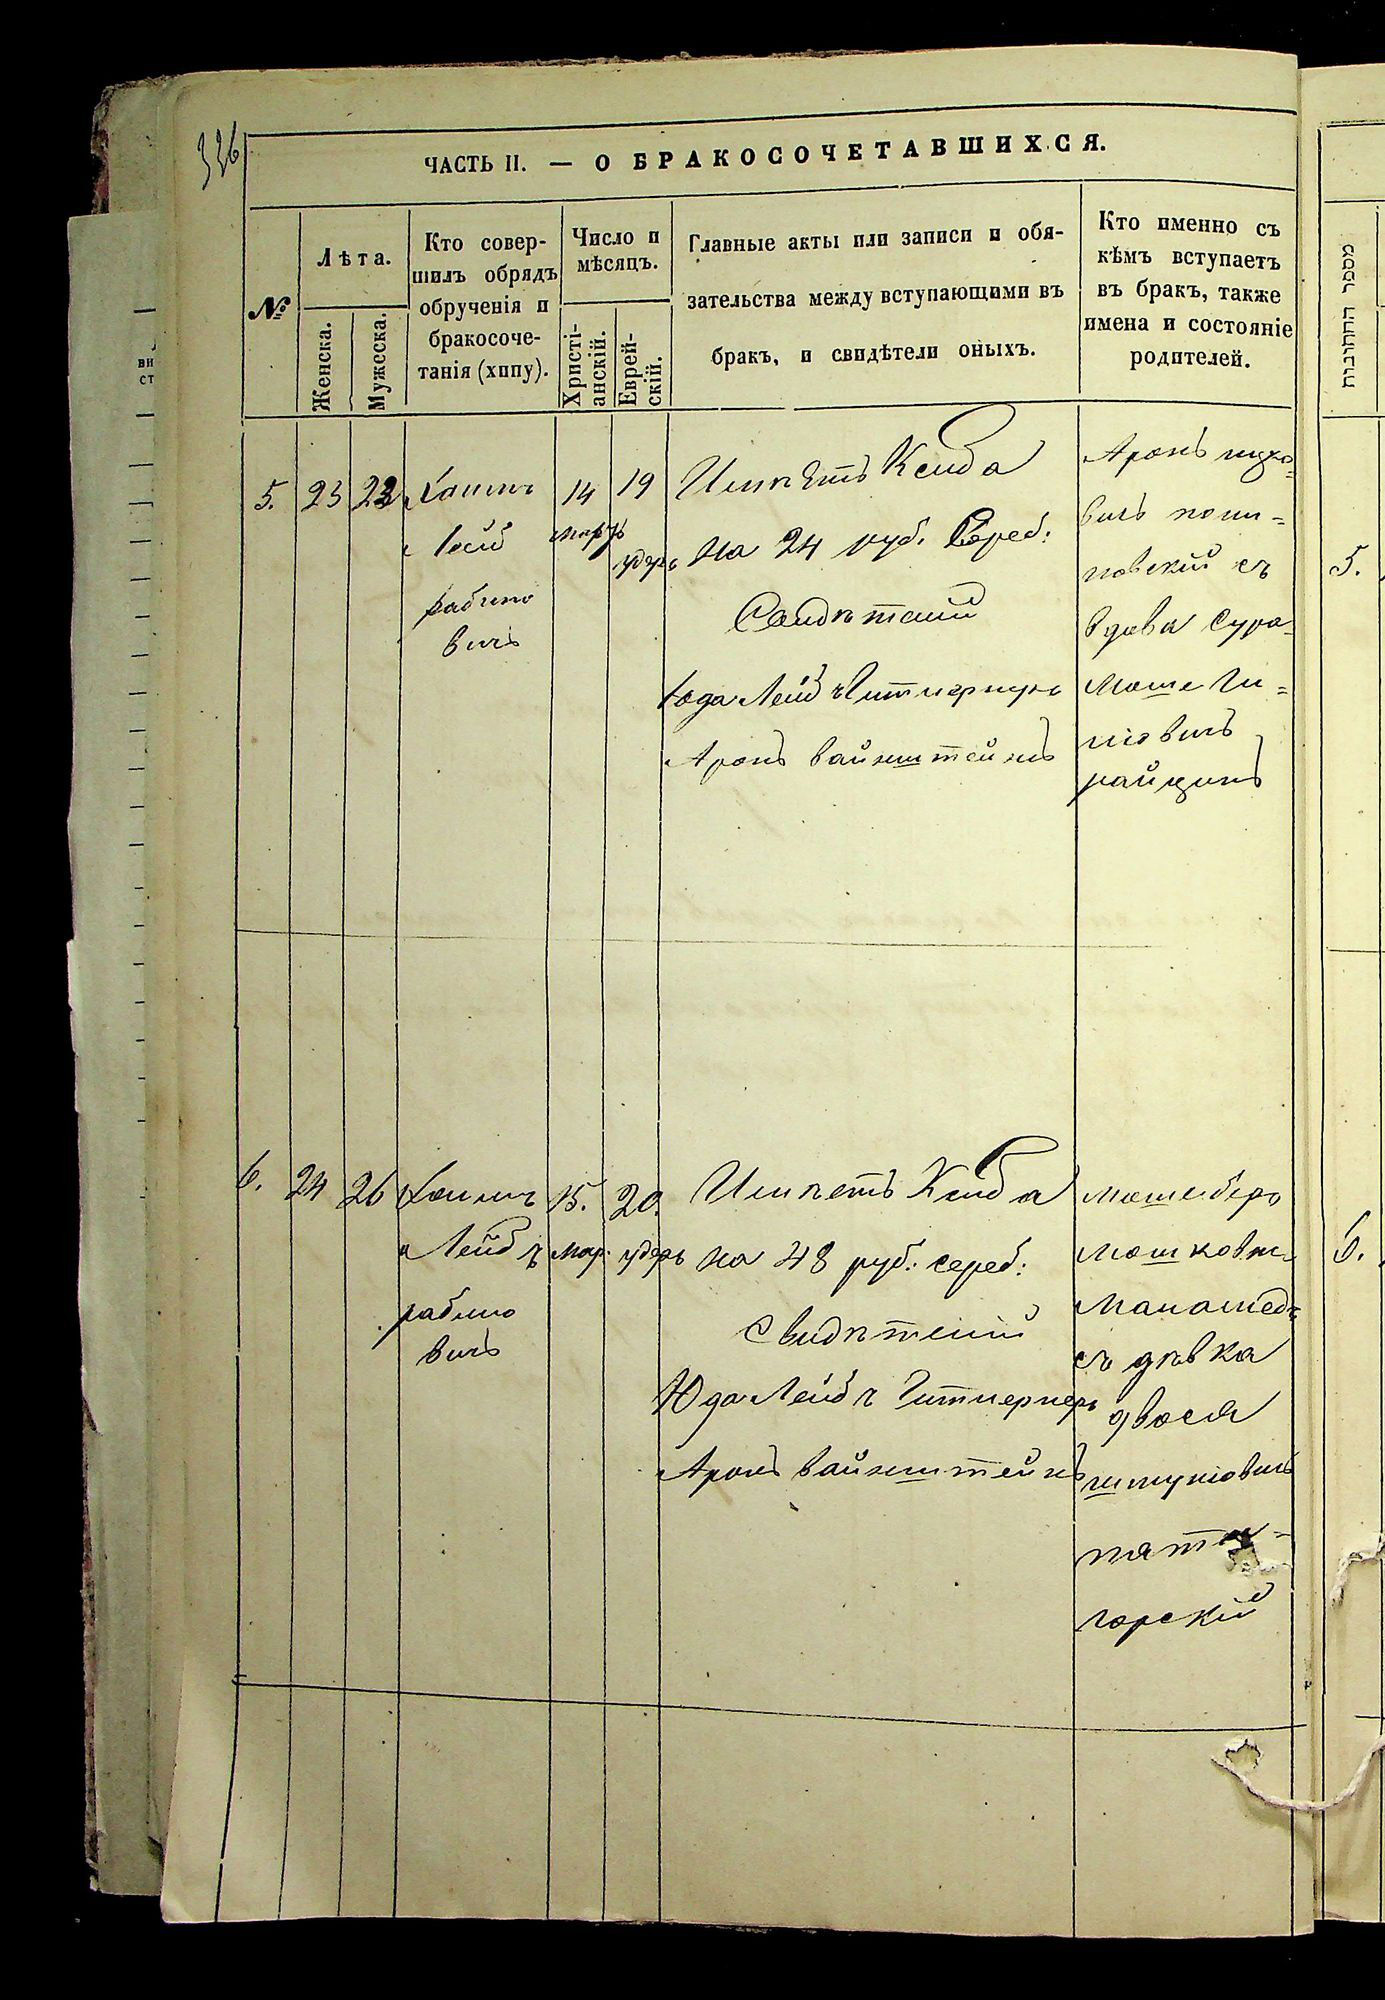 336
ЧАСТЬ II. — О БРАКОСОЧЕТАВШИХСЯ.
№
Лѣта.
Женска.
Мужеска.
Кто совер-
шилъ обрядъ
обрученія и
бракосоче-
танія (хипу).
Число и
мѣсяцъ.
Христі-
анскій.
Еврей-
скій.
Главные акты или записи и обя-
зательства между вступающими въ
бракъ, и свидѣтели оныхъ.
Кто именно съ
кѣмъ вступаетъ
въ бракъ, также
имена и состояніе
родителей.
5.
23
23
Хаимъ
Лейб
рабино
вичъ
14
мартъ
19
удеръ
Имѣетъ Ксиба
на 24 руб. Сереб:
Свидѣтелій
Юда Лейбъ
Аронъ вайнштейнъ
Аронъ
вичъ
новскій съ
вдова Сура
Моше
вичъ
6.
24
26
Хаимъ
Лейбъ
рабино
вичъ
15.
Мар.
20.
удеръ
Имѣетъ Ксиба
на 48 руб: сереб:
Свидѣтелій
Юда Лейбъ
Аронъ вайнштейнъ
Мошебер
Мошкови
съ дѣвка
двося
шмуліовичъ
пяти-
горскій
מספר החתונות
5.
6.